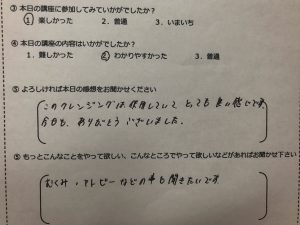 ③ 本日の講座に参加してみていかがでしたか？
① 楽しかった　2. 普通　3. いまいち
④ 本日の講座の内容はいかがでしたか？
1. 難しかった　② わかりやすかった　3. 普通
⑤ よろしければ本日の感想をお聞かせください
このクレンジングは使用していて とても良い感じです
今日も、ありがとうございました。
⑤ もっとこんなことをやって欲しい、こんなところでやって欲しいなどがあればお聞かせ下さい
むくみ・アトピーなどの事も聞きたいです